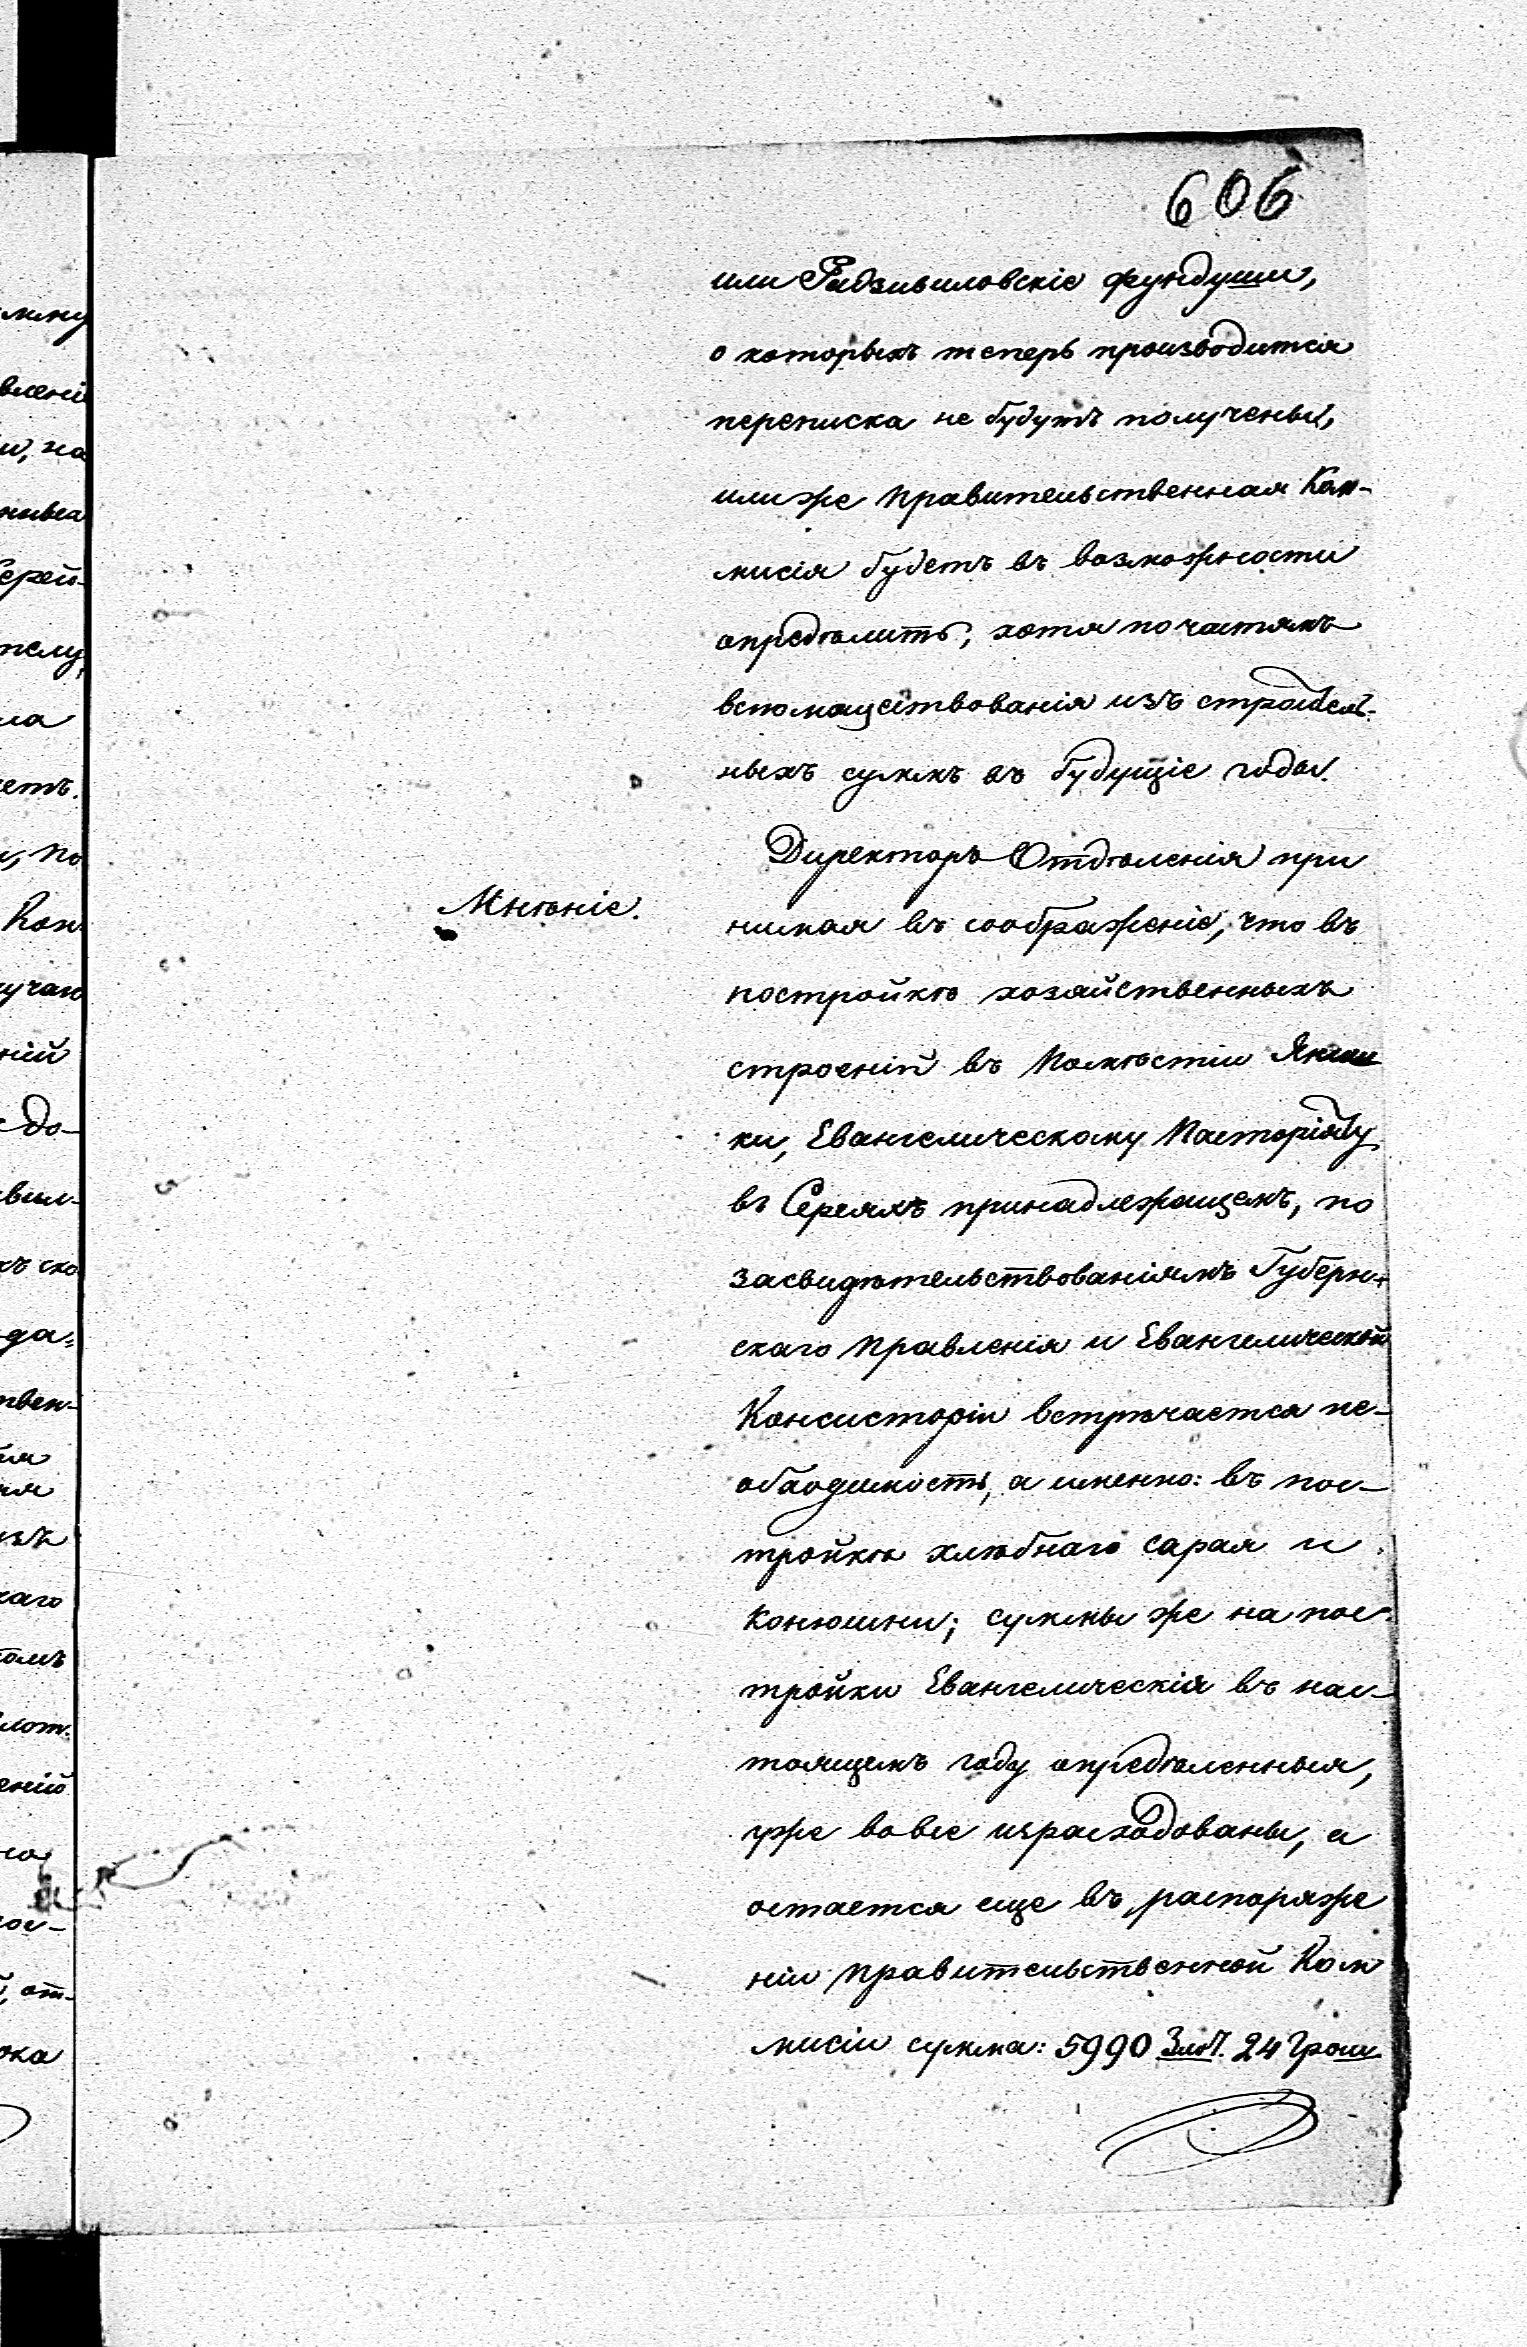 606
или Радзивиловскіе фундуши,
о которыхъ теперь производится
переписка не будутъ получены,
или же Правительственная Ком-
мисія будетъ въ возможности
опредѣлить, хотя по частямъ
вспомоществованія изъ строитель-
ныхъ суммъ въ будущіе годы.
Мнѣніе.
Директоръ Отдѣленія при
нимая въ соображеніе, что въ
постройкѣ хозяйственныхъ
строеній въ Помѣстіи
ки, Евангелическому Пасторіяту
въ Сереяхъ принадлежащемъ, по
засвидѣтельствованіямъ Губерн-
скаго Правленія и Евангелической
Консисторіи встрѣчается не-
обходимость, а именно: въ пос-
тройкѣ хлѣбнаго сарая и
конюшни; суммы же на пос-
тройки Евангелическія въ нас-
тоящемъ году опредѣленныя,
уже вовсе израсходованы, а
остается еще въ распоряже
ніи Правительственной Ком
мисіи сумма: 5990 Злот. 24 Грош